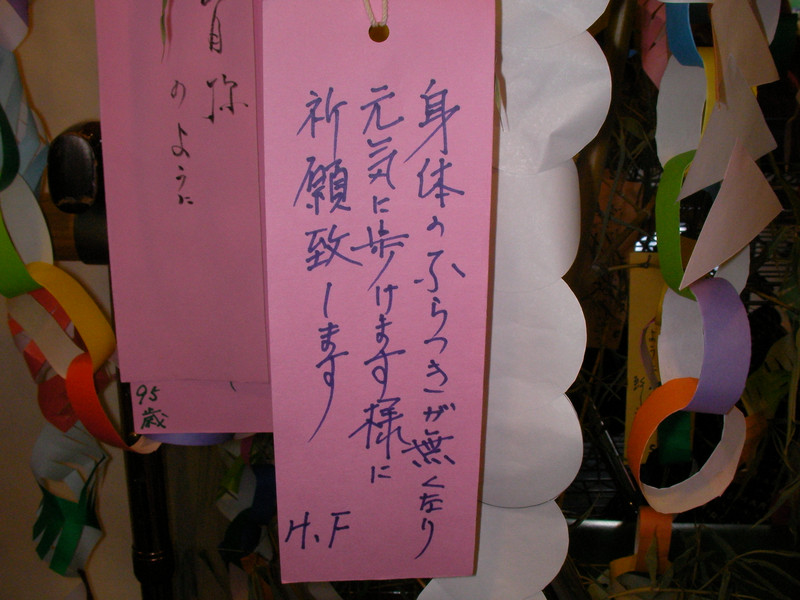 身体のふらつきが無くなり
元気に歩けます様に
祈願致します
H.F
のように
95
歳